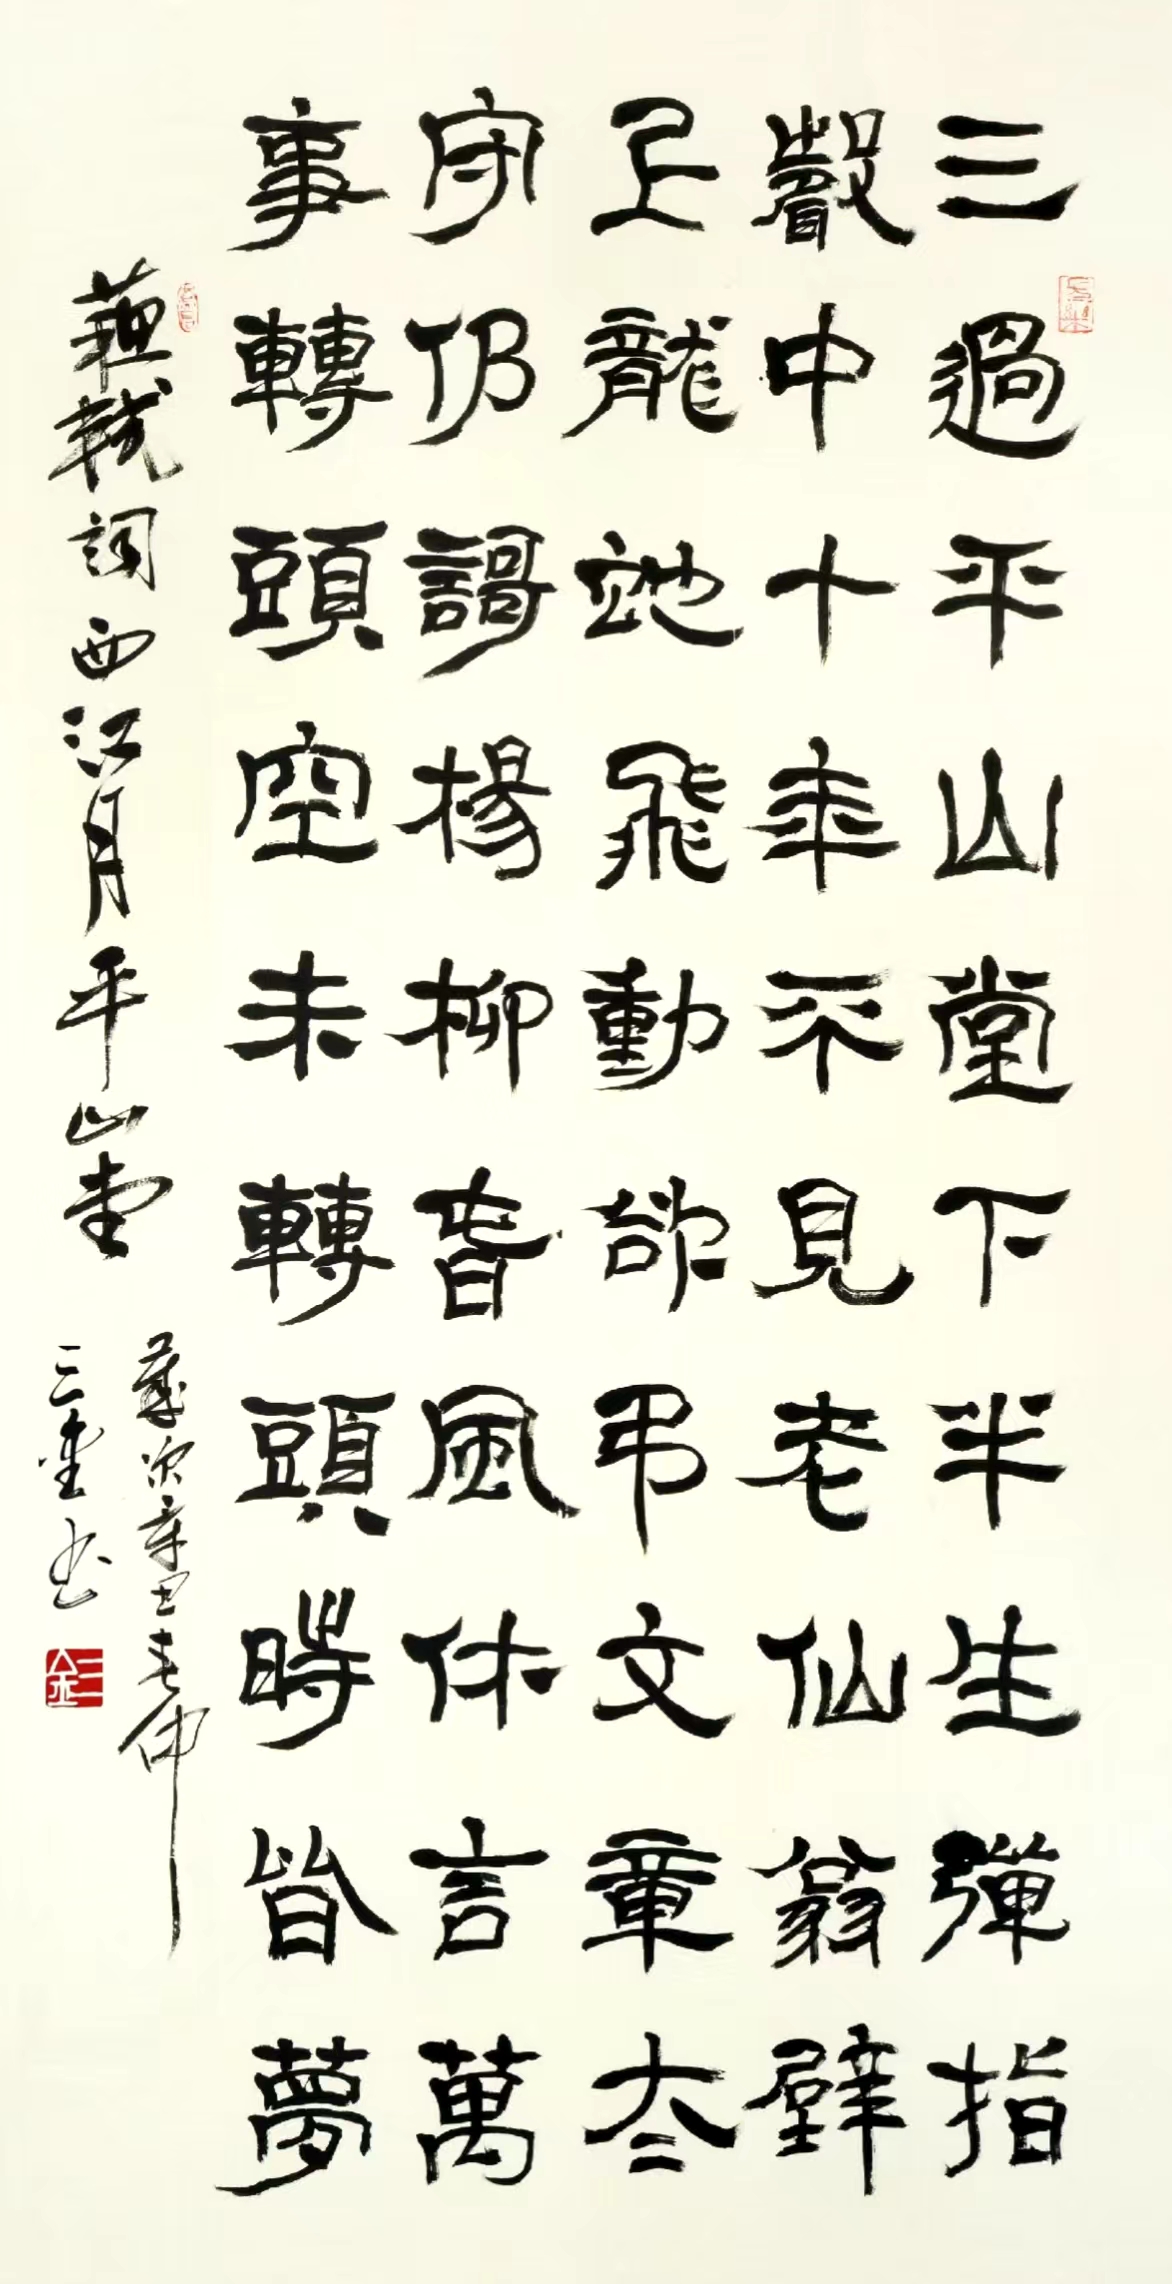 三過平山堂下半生彈指
聲中十年不見老仙翁壁
上龍蛇飛動欲弔文章太
守仍謌楊柳春風休言萬
事轉頭空未轉頭時皆夢
蘇軾詞西江月平山堂
歲次辛丑春仲
三金书
三金